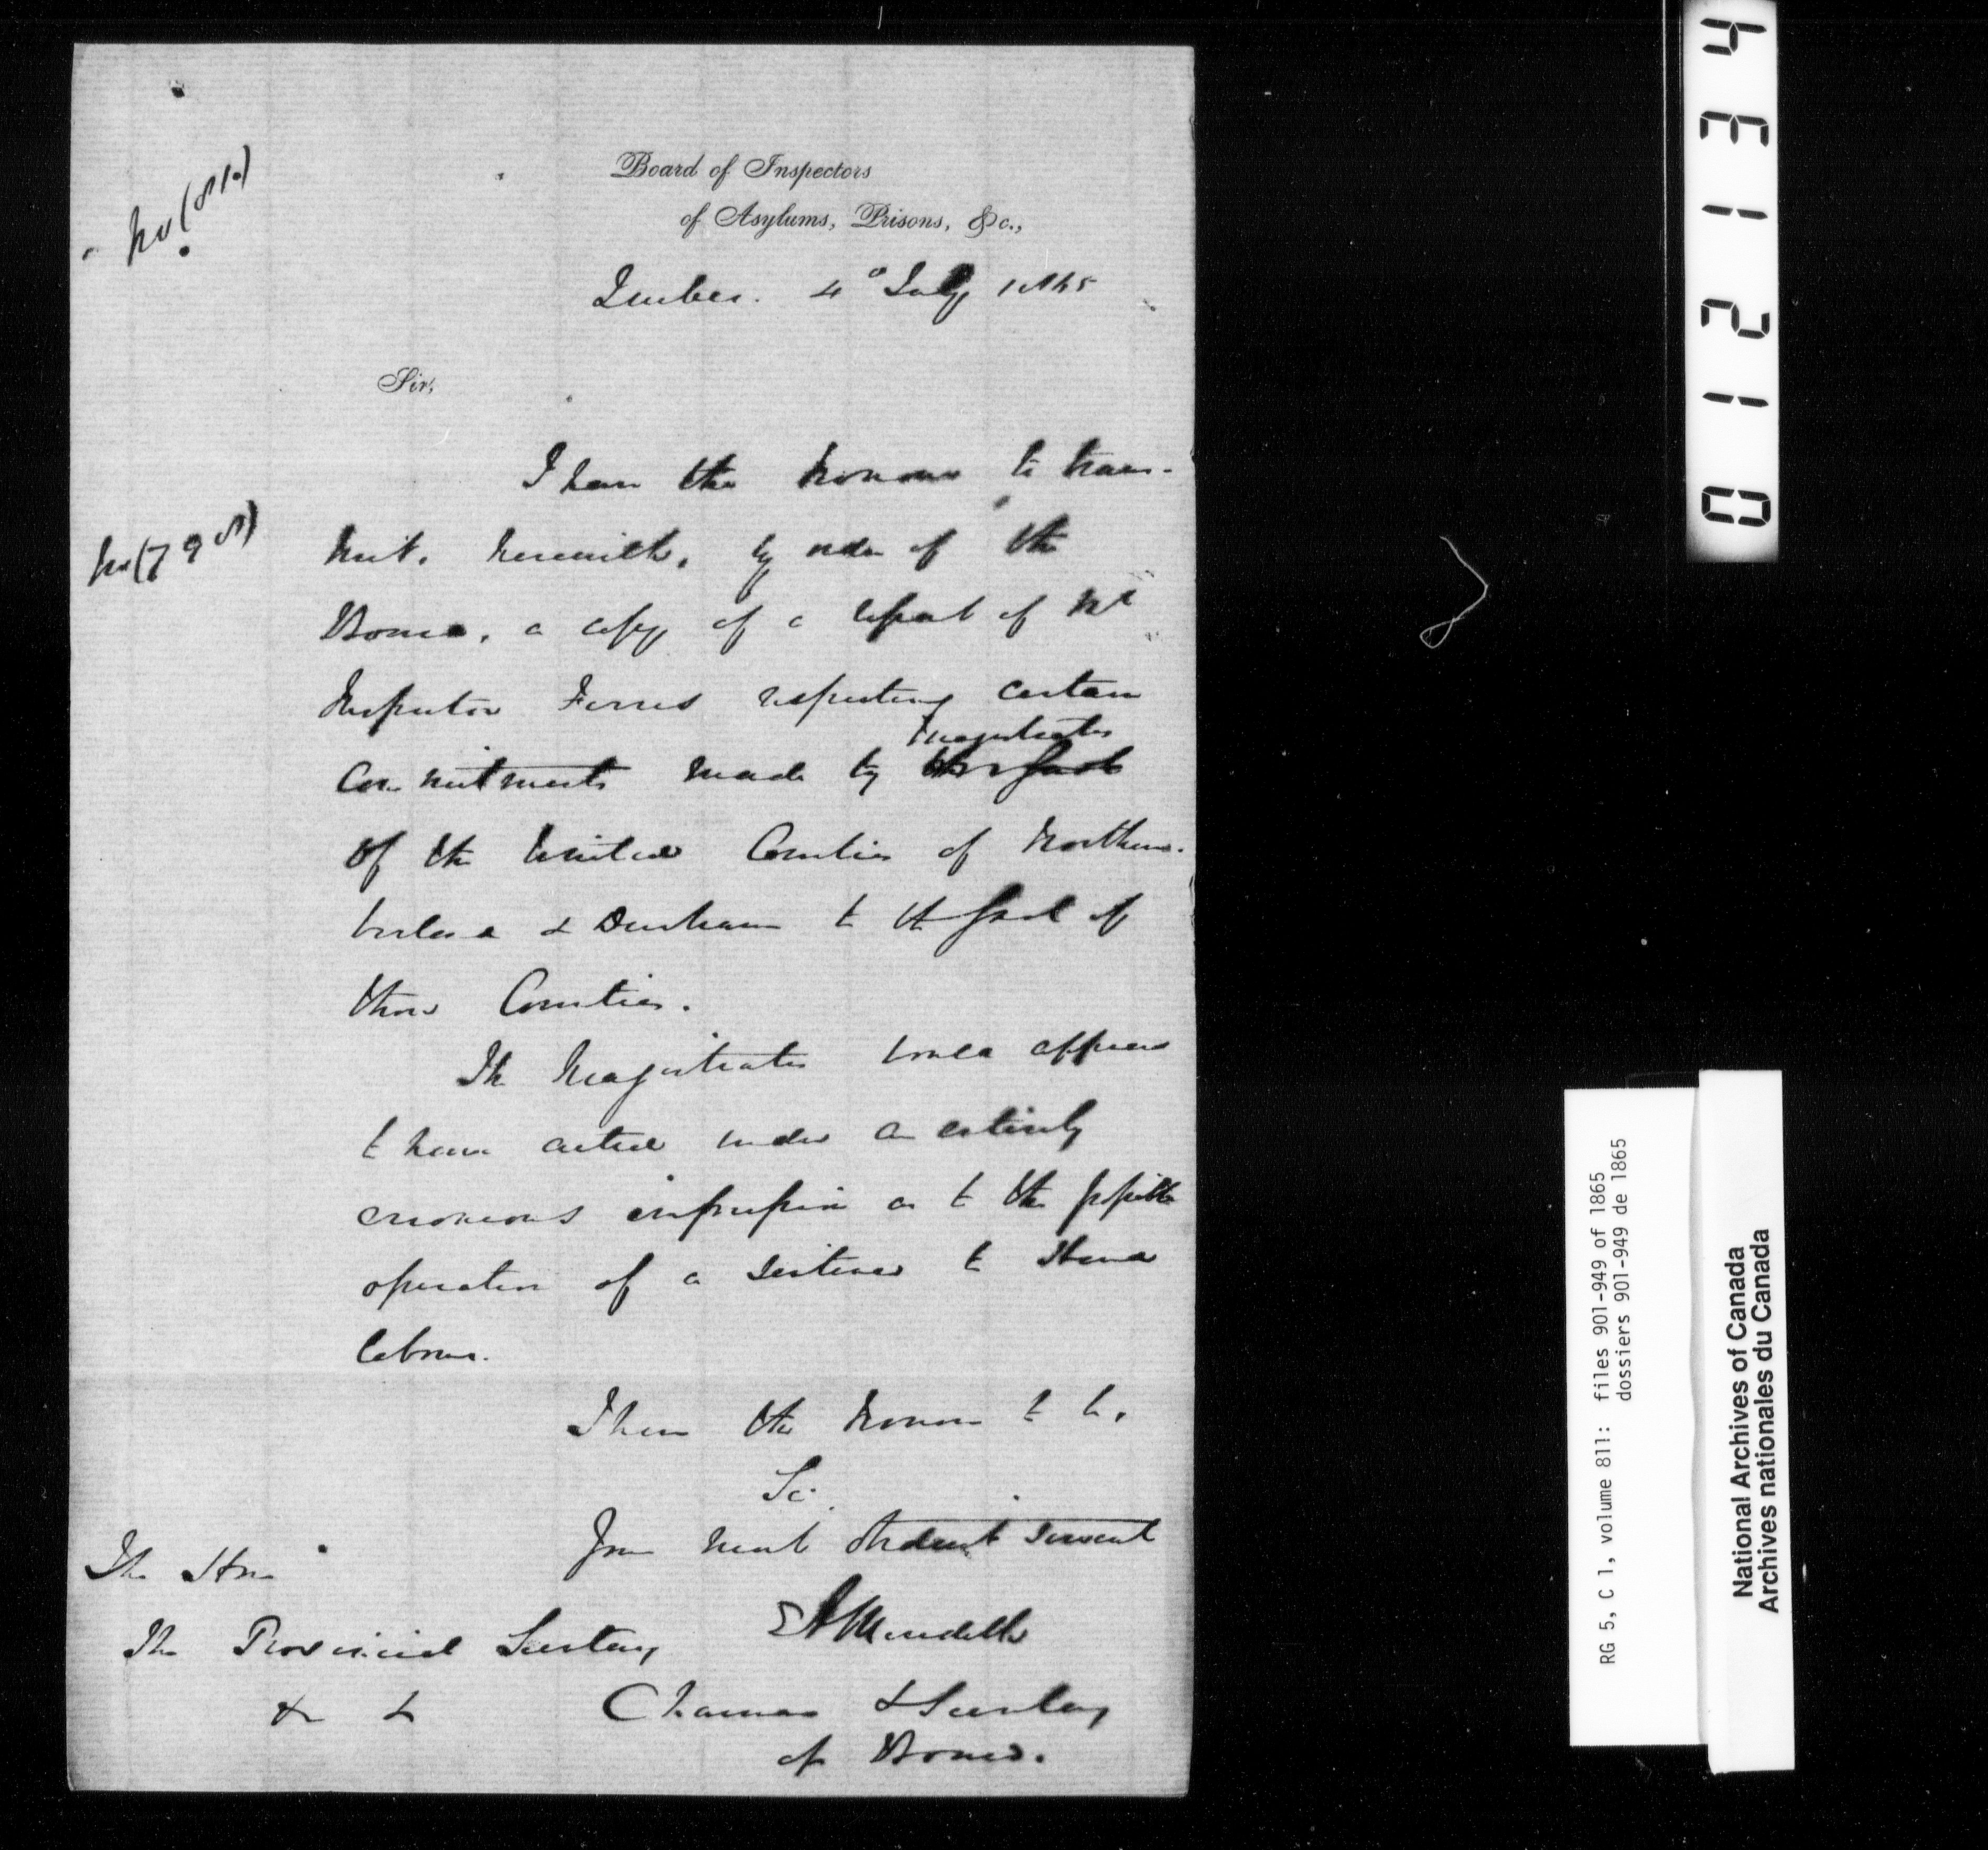 No (81.)
Board of Inspectors
of Asylums, Prisons, &c.,
Quebec. 4° July 1865
Sir,
I have the honour to trans-
No (798)
mit, herewith, by order of the
Board, a copy of a report of Mr
Inspector Ferres respecting certain
Magistrates
commitments made by the Gaol
of the United Counties of Northum-
berland & Durham to the Gaol of
those Counties.
The Magistrates would appear
to have acted under an entirely
erroneous impression as to the
operation of a sentence to Hard
labour.
I have the honour to be,
Sir
Your most obedient servant
EA Meredith
The Hon
The Provincial Secretary
Chairman & Secretary
&c &
of Board.
012134
RG 5, C 1, volume 811: files 901-949 of 1865
dossiers 901-949 de 1865
National Archives of Canada
Archives nationales du Canada